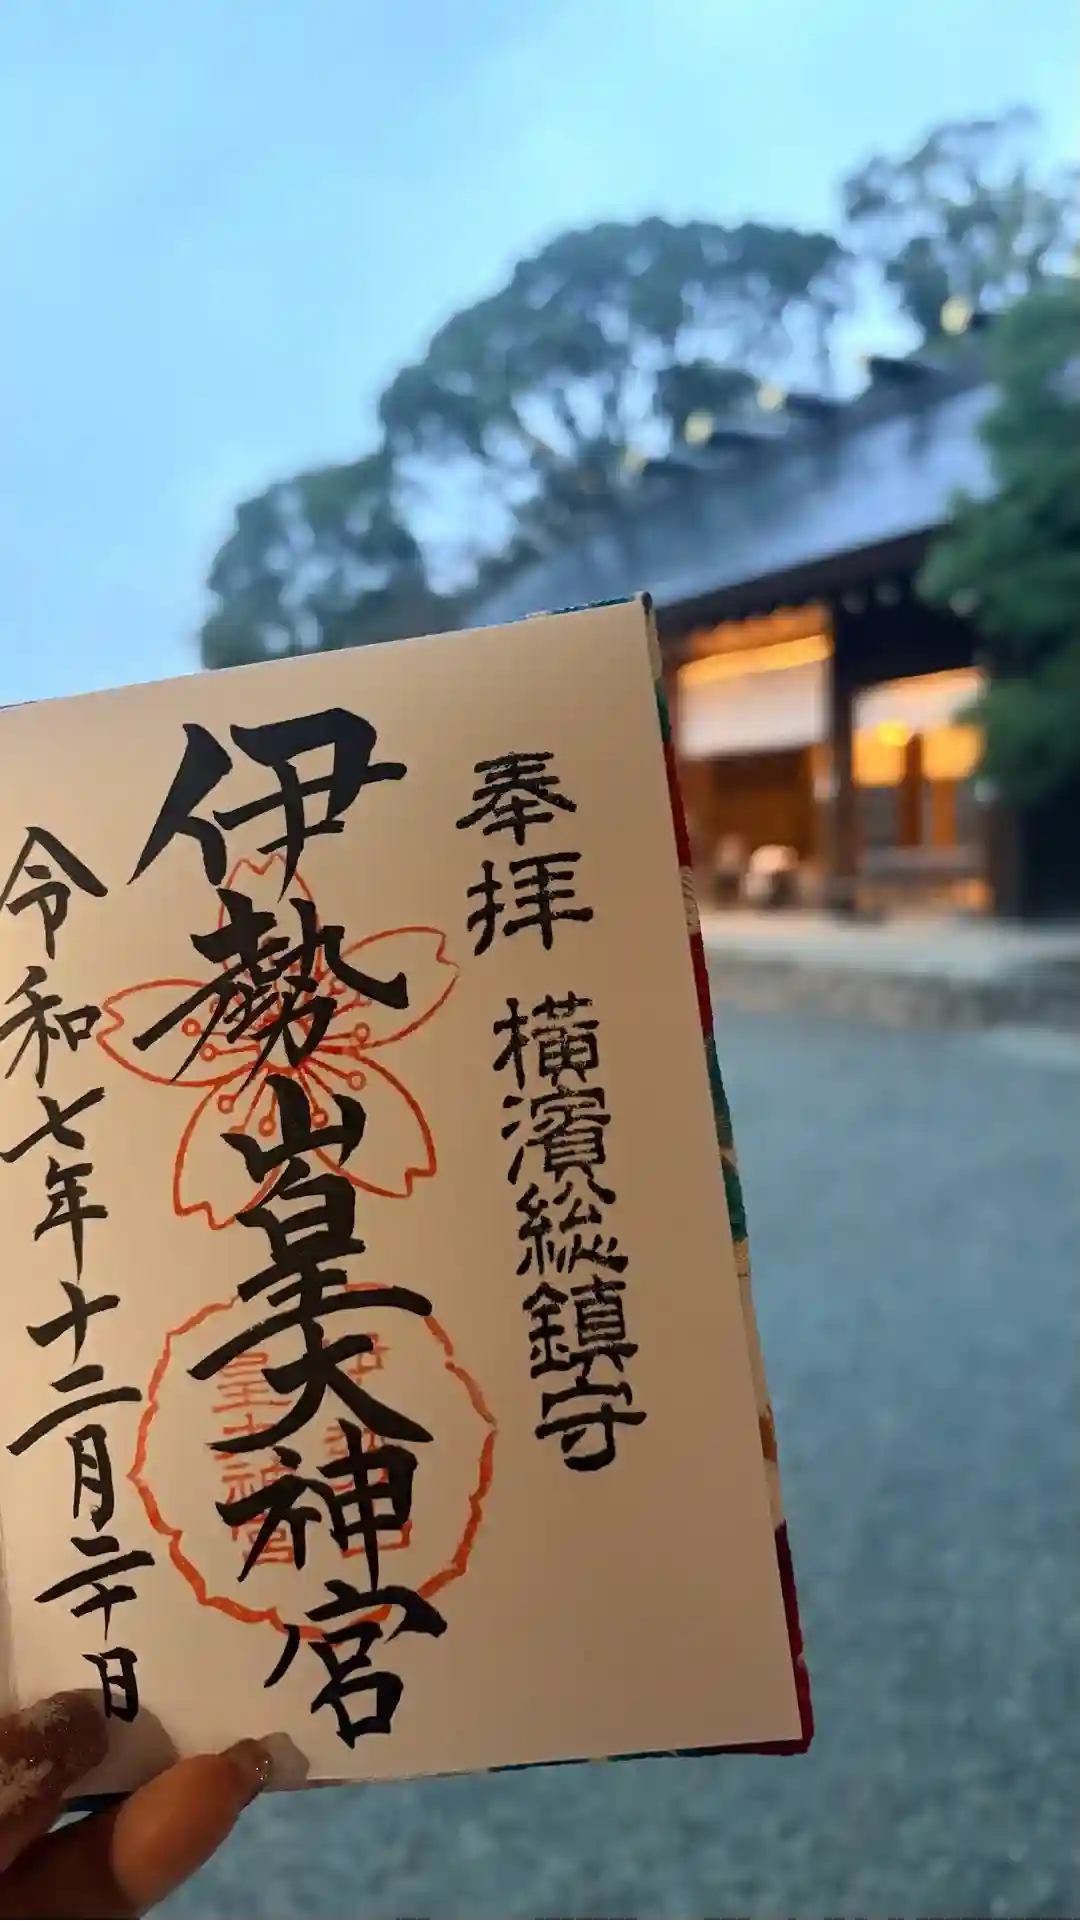 奉拝 横濱総鎮守
伊勢山皇大神宮
令和七年十二月二十日